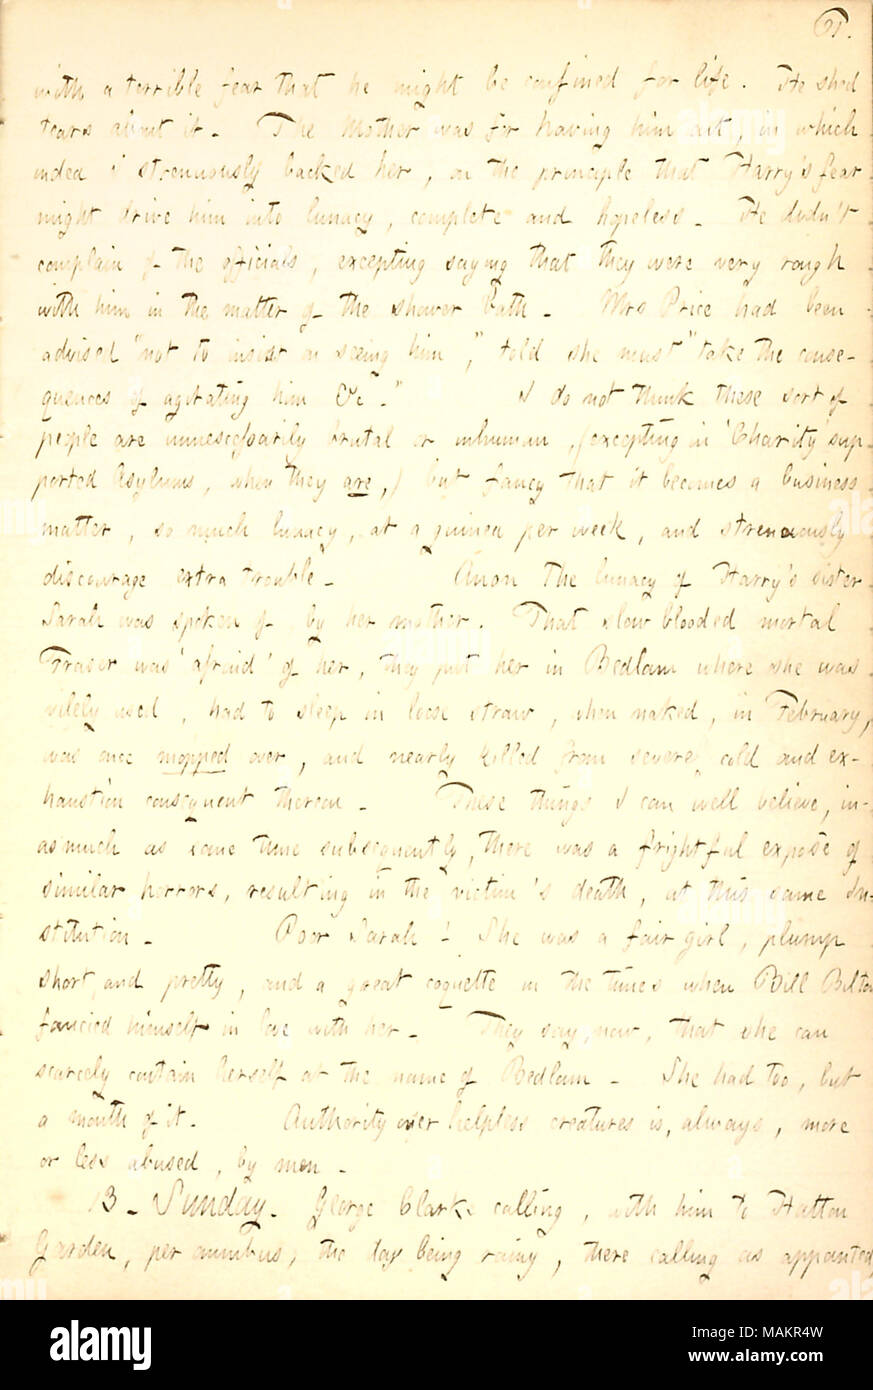 61.
with a terrible fear that he might be confined for life. He shed
tears about it. The Mother was for having him out, in which
indeed I strenuously backed her, on the principle that Harry's fear
might drive him into lunacy, complete and hopeless. He didn't
complain of the officials, excepting saying that they were very rough
with him in the matter of the shower bath. Mrs Price had been
advised "not to insist on seeing him," told she must "take the conse-
quences of agitating him &c." I do not think these sort of
people are unnecessarily brutal or inhuman, (excepting in 'Charity' sup-
ported Asylums, when they are,) but fancy that it becomes a business
matter, so much lunacy, at a guinea per week, and strenuously
discourage extra trouble. Anon the lunacy of Harry's sister
Sarah was spoken of, by her mother. That slow blooded mortal
Fraser was 'afraid' of her, they put her in Bedlam where she was
vilely used, had to sleep in loose straw, when naked, in February,
was once mopped over, and nearly killed from severe cold and ex-
haustion consequent thereon. These things I can well believe, in-
asmuch as some time subsequently, there was a frightful exposé of
similar horrors, resulting in the victim's death, at this same In-
stitution. Poor Sarah! She was a fair girl, plump
short, and pretty, and a great coquette in the times when Bill Bilton
fancied himself in love with her. They say, now, that she can
scarcely contain herself at the name of Bedlam. She had too, but
a month of it. Authority over helpless creatures is, always, more
or less abused, by men.
13. Sunday. George Clarke calling, with him to Hatton
Garden, per omnibus, the day being rainy, there calling as appointed
alamy
Image ID: MAKR4W
www.alamy.com